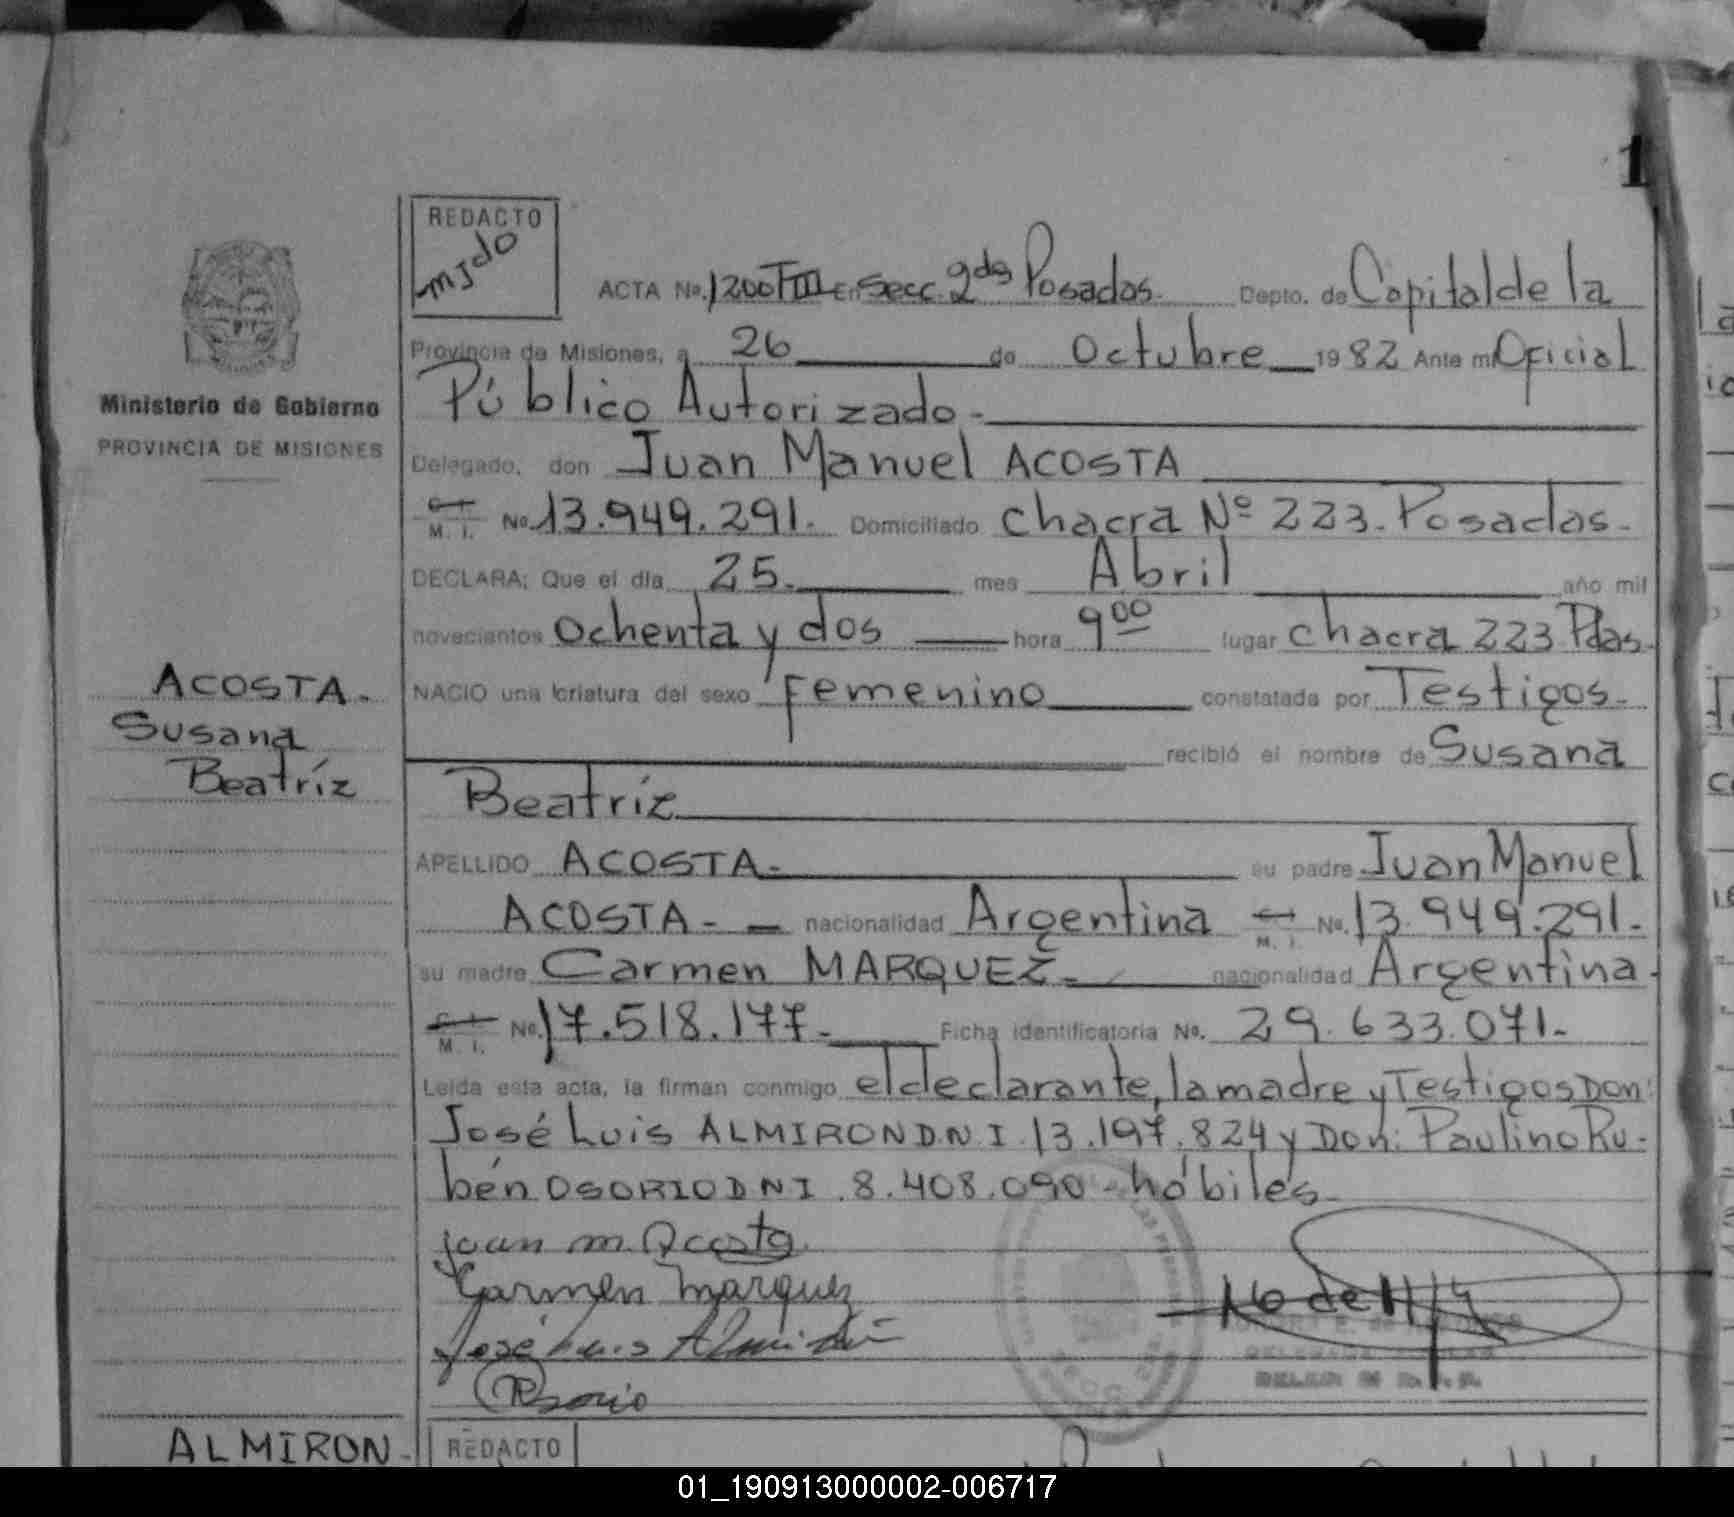 1
REDACTO
mjdo
ACTA No. 1200 TIII En Secc. 2da Posadas. Depto. de Capital de la
Provincia de Misiones, a 26 de Octubre 1982 Ante mi Oficial
Público Autorizado.-
Ministerio de Gobierno
PROVINCIA DE MISIONES
Delegado, don Juan Manuel ACOSTA
M. I. No. 13.949.291. Domiciliado chacra Nº 223. Posadas.
DECLARA: Que el día 25. mes Abril año mil
novecientos ochenta y dos hora 9 00 lugar chacra 223 Pdas.
NACIO una criatura del sexo femenino constatada por Testigos.
recibió el nombre de Susana
Beatríz
ACOSTA.
Susana
Beatríz
APELLIDO ACOSTA.- su padre Juan Manuel
ACOSTA.- nacionalidad Argentina M. I. No. 13.949.291.
su madre Carmen MARQUEZ. nacionalidad Argentina.
M. I. No. 17.518.177. Ficha identificatoria No. 29.633.071.
Leída esta acta, la firman conmigo el declarante, la madre y Testigos Don:
José Luis ALMIRON D.N.I. 13.197.824 y Don: Paulino Ru-
bén OSORIO DNI. 8.408.090 - hábiles.
juan m. Acosta
Carmen Marquez
José Luis Almirón
Osorio
ALMIRON
REDACTO
01_190913000002-006717